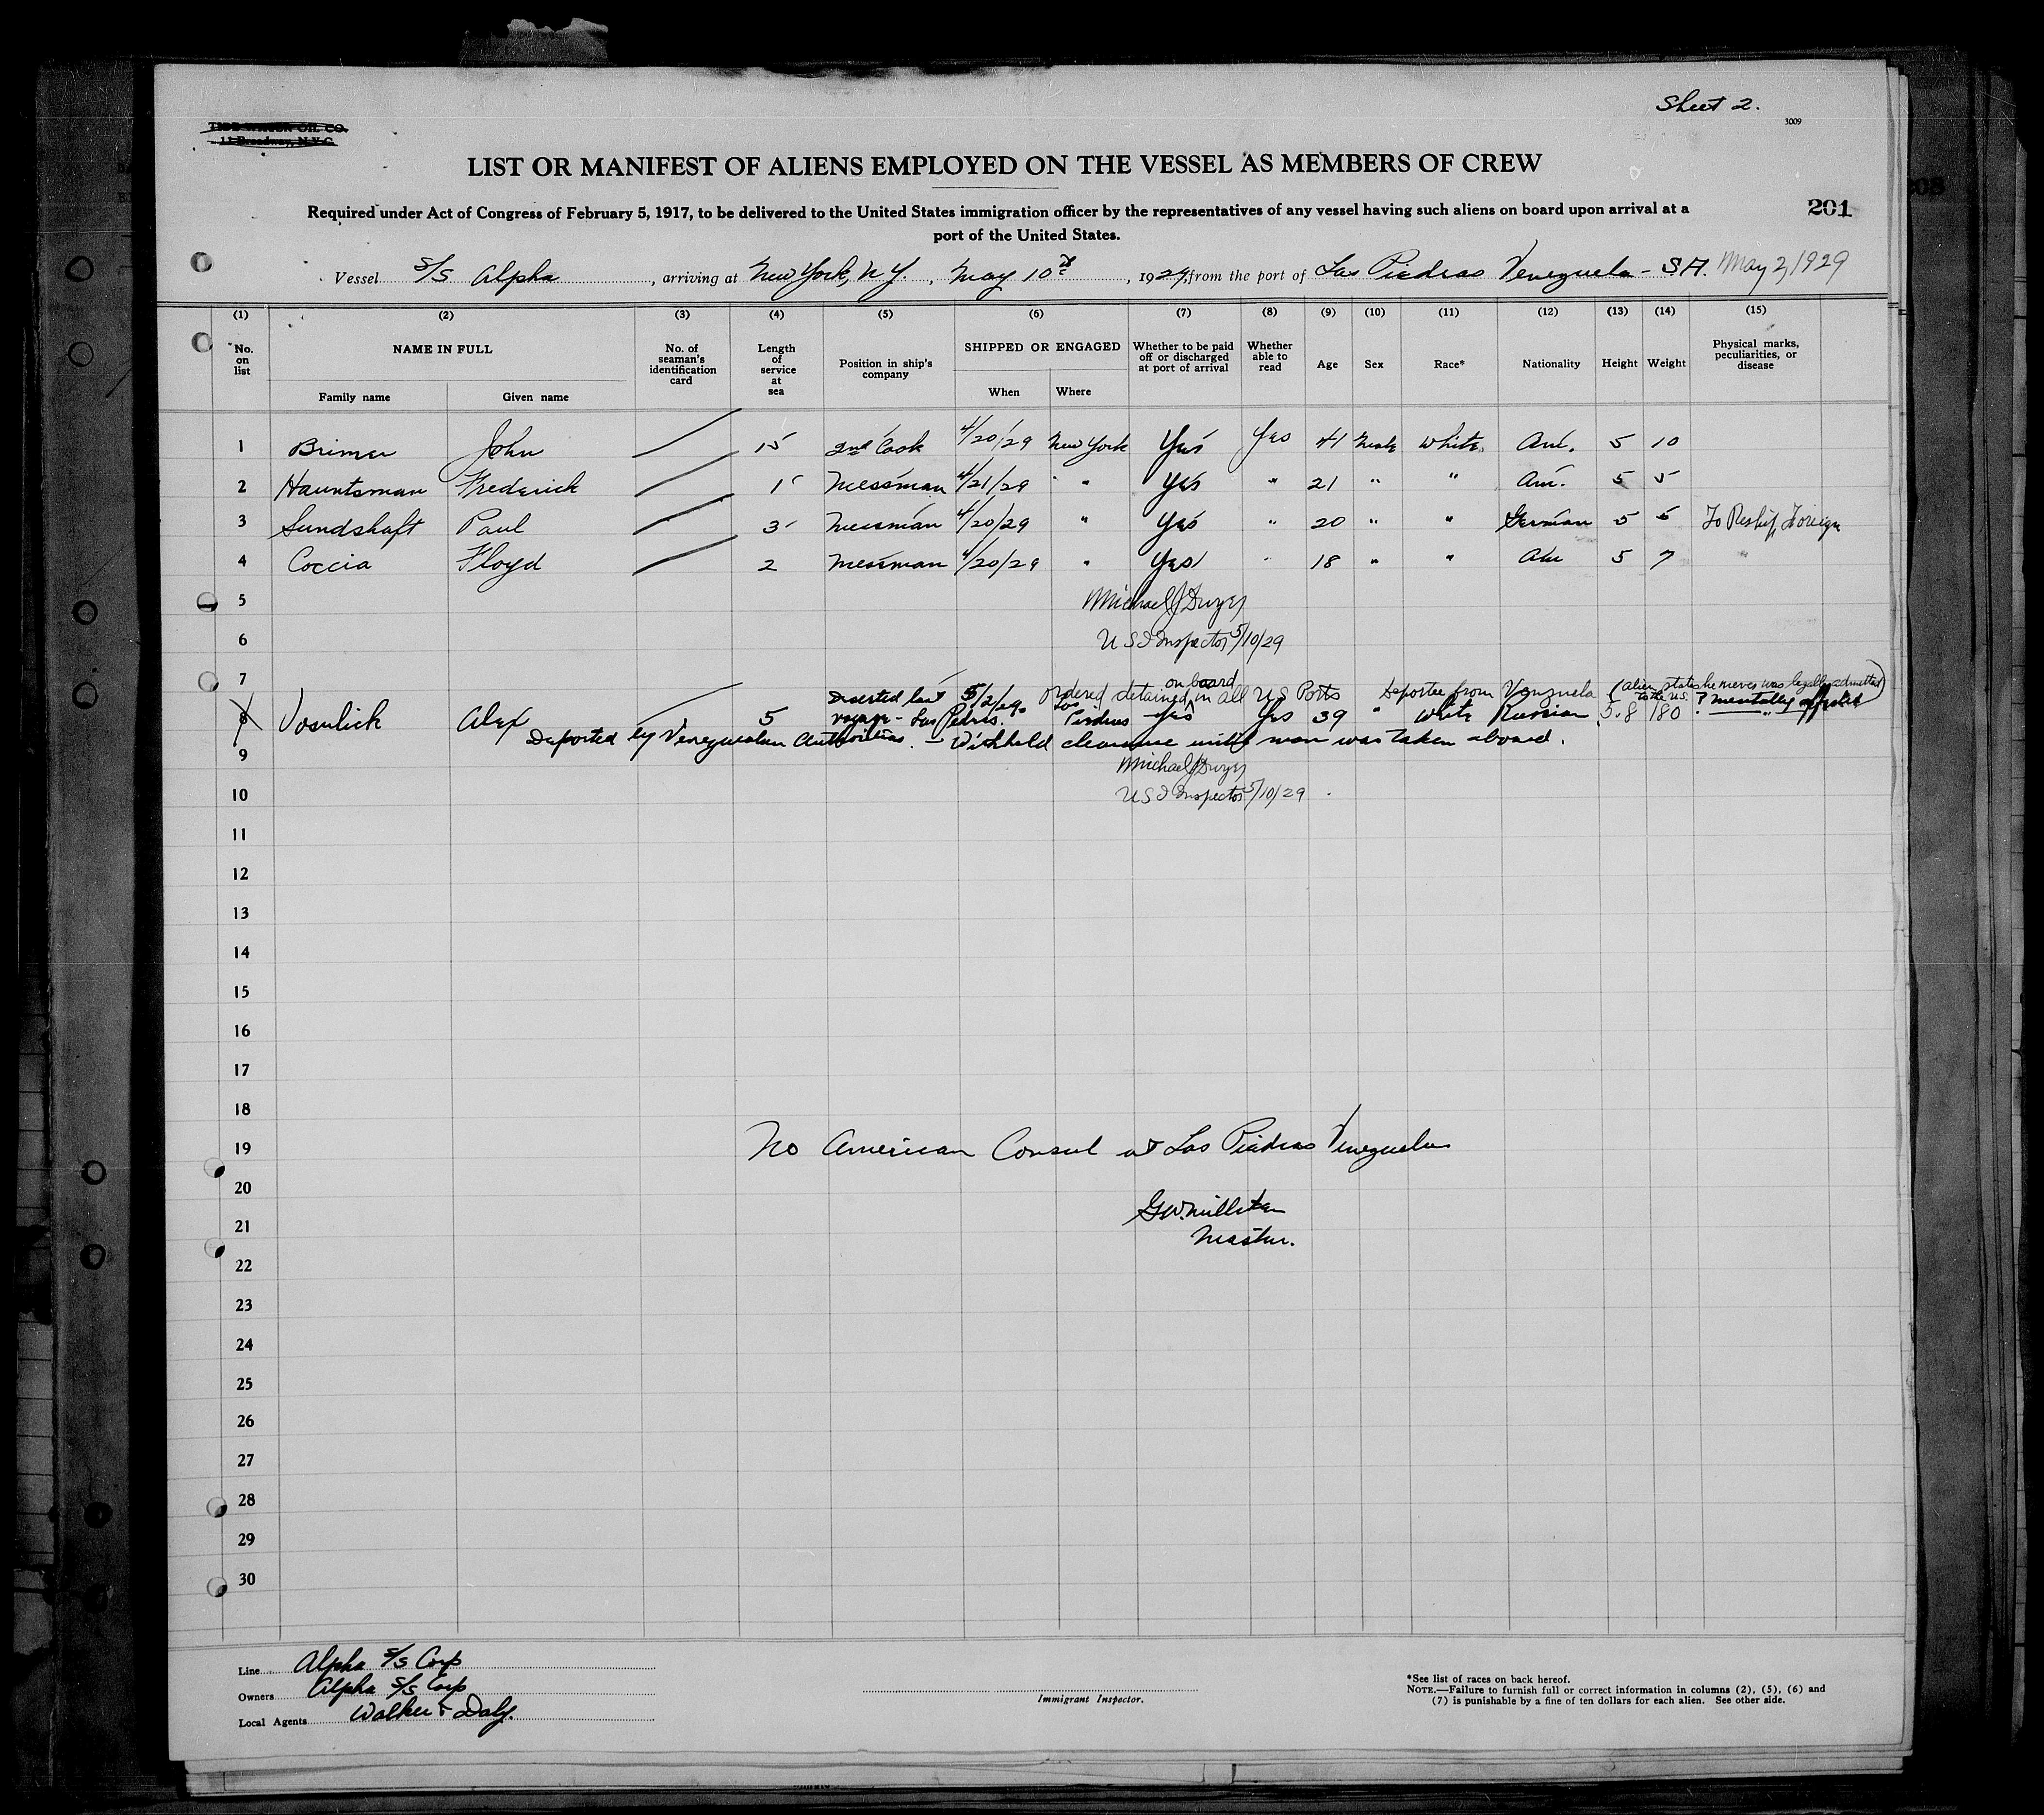 Sheet 2.
3009
TIDE WATER OIL CO.
11 Broadway, N.Y.C.
LIST OR MANIFEST OF ALIENS EMPLOYED ON THE VESSEL AS MEMBERS OF CREW
Required under Act of Congress of February 5, 1917, to be delivered to the United States immigration officer by the representatives of any vessel having such aliens on board upon arrival at a
port of the United States.
201
Vessel S/S Alpha, arriving at New York, N.Y., May 10th, 1929, from the port of Las Piedras Venezuela - S.A. May 2, 1929
(1) (2) (3) (4) (5) (6) (7) (8) (9) (10) (11) (12) (13) (14) (15)
No. on list NAME IN FULL Family name Given name No. of seaman's identification card Length of service at sea Position in ship's company SHIPPED OR ENGAGED When Where Whether to be paid off or discharged at port of arrival Whether able to read Age Sex Race* Nationality Height Weight Physical marks, peculiarities, or disease
1 Brimer John 15 2nd Cook 4/20/29 New York Yes Yes 41 Male White Am. 5 10
2 Hauntsman Frederick 1 Messman 4/21/29 " Yes " 21 " " Am. 5 5
3 Sundshaft Paul 3 Messman 4/20/29 " Yes " 20 " " German 5 6 To Reship Foreign
4 Coccia Floyd 2 Messman 4/20/29 " Yes " 18 " " Am 5 7
5 Michael J Dwyer
6 U S I Inspector 5/10/29
7 Ordered detained on board in all US Ports Deportee from Venezuela (alien states he never was legally admitted to the U.S.)
8 Vosulick Alex 5 Deserted last voyage - Las Pedras. 5/2/29 Las Piedras Yes Yes 39 " White Russian 5.8 180 ? mentally affected
Deported by Venezuelan Authorities. - Withheld clearance until man was taken aboard.
9 Michael J Dwyer
10 U S I Inspector 5/10/29
11
12
13
14
15
16
17
18
19 No American Consul at Las Piedras Venezuela
20
21 G.W. Milliken
Master.
22
23
24
25
26
27
28
29
30
Line Alpha S/S Corp
Owners Alpha S/S Corp
Local Agents Walker & Daly.
Immigrant Inspector.
*See list of races on back hereof.
NOTE.—Failure to furnish full or correct information in columns (2), (5), (6) and
(7) is punishable by a fine of ten dollars for each alien. See other side.